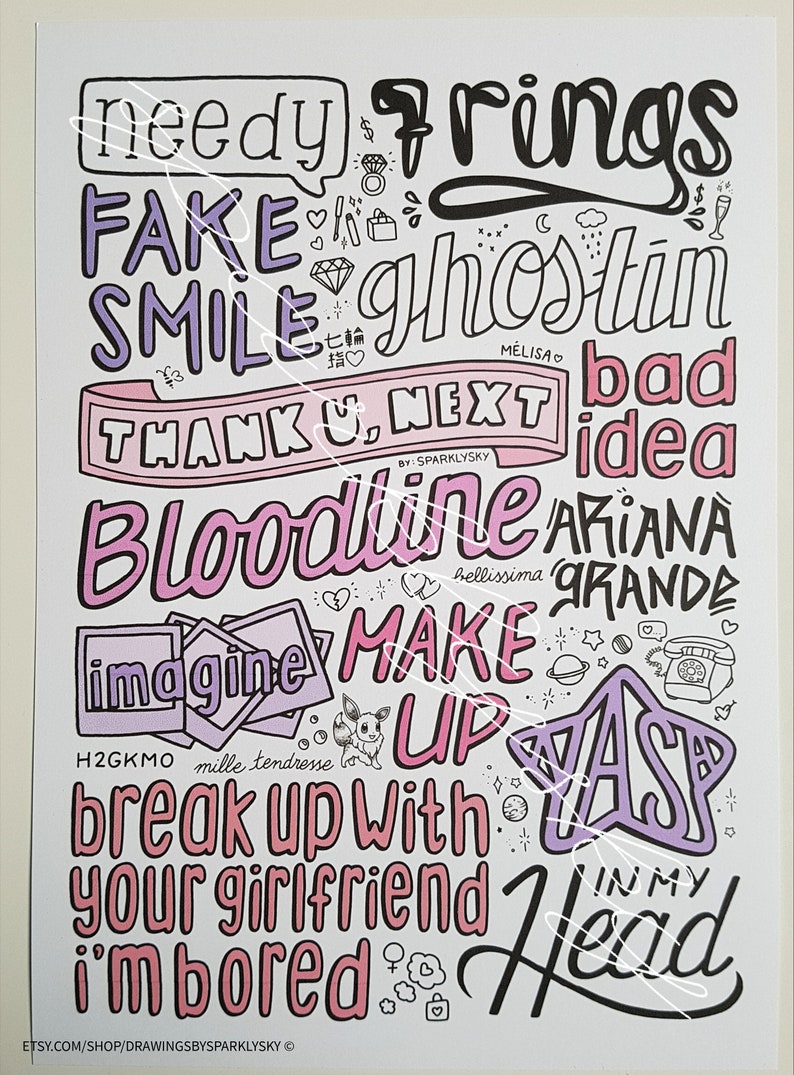 needy
7 rings
FAKE
SMILE
ghostin
七輪
指♡
MÉLISA♡
THANK U, NEXT
bad
idea
BY: SPARKLYSKY
Bloodline
ARIANA
GRANDE
bellissima
imagine
MAKE
UP
H2GKMO
mille tendresse
NASA
break up with
your girlfriend
i'm bored
IN MY
Head
ETSY.COM/SHOP/DRAWINGSBYSPARKLYSKY ©